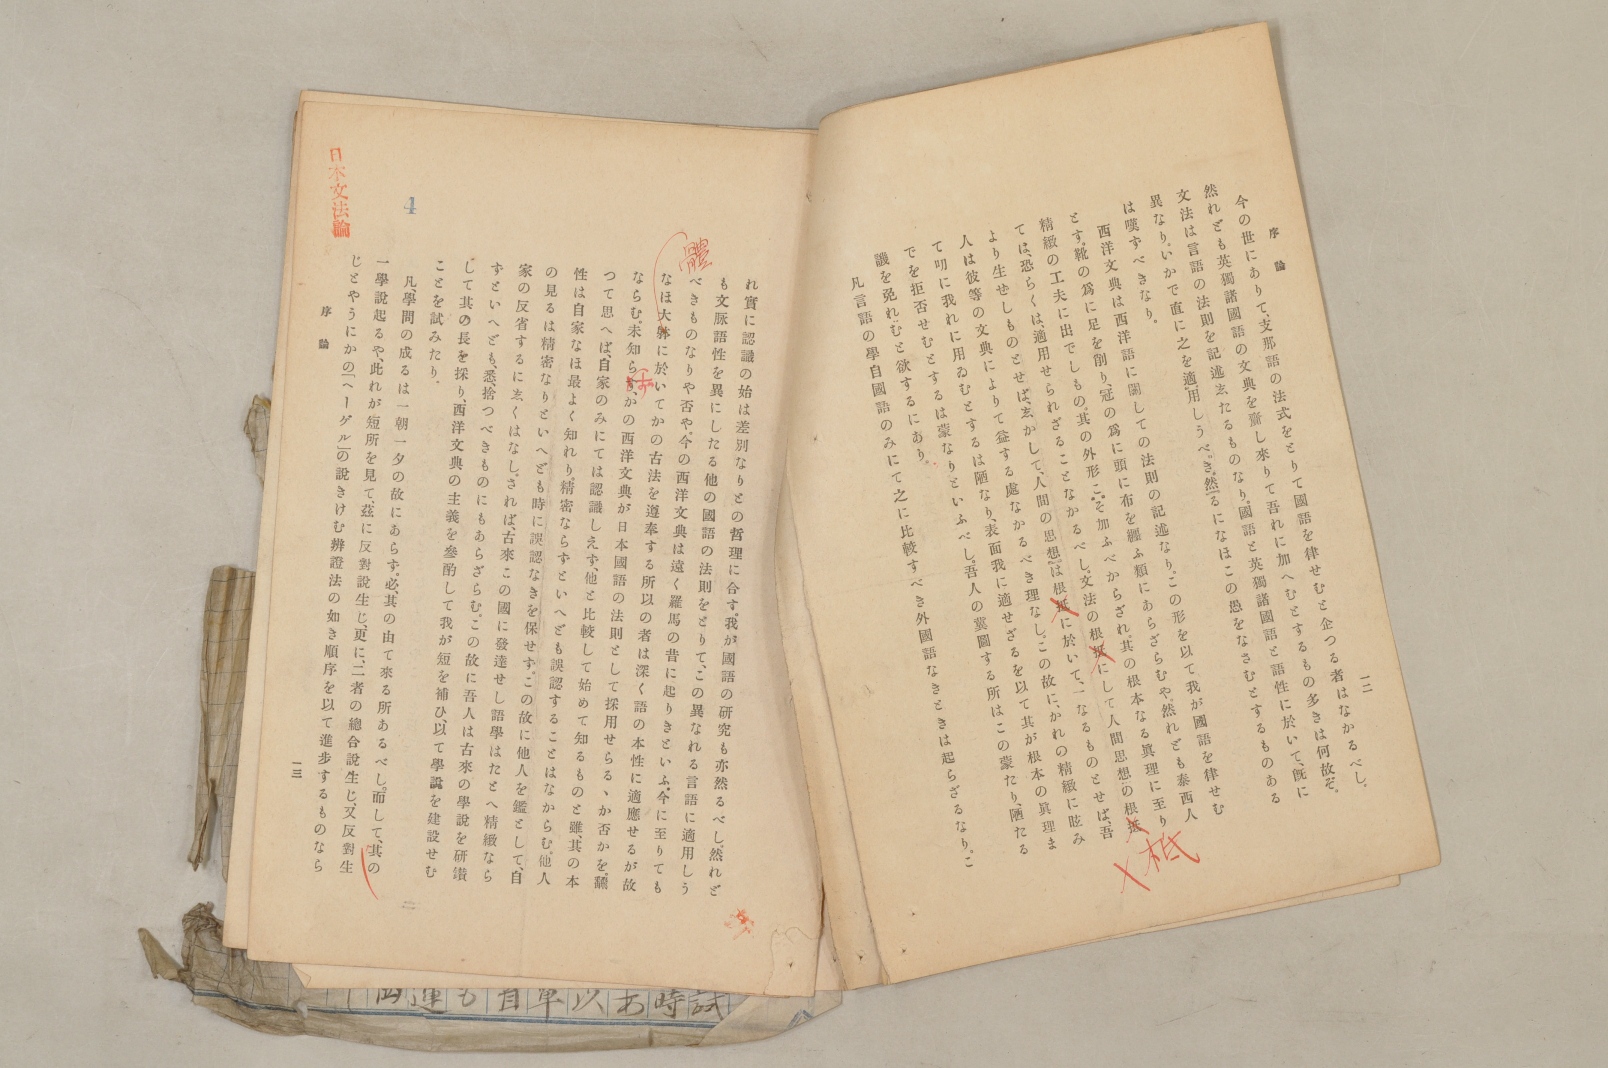 序論
一二
今の世にありて、支那語の法式をとりて國語を律せむと企つる者はなかるべし。
然れども英獨諸國語の文典を齎し來りて吾れに加へむとするもの多きは何故ぞ。
文法は言語の法則を記述ゑたるものなり。國語と英獨諸國語と語性に於いて、旣に
異なり。いかで直に之を適用しうべき。然るになほこの愚をなさむとするものある
は嘆ずべきなり。
西洋文典は西洋語に關しての法則の記述なり。この形を以て我が國語を律せむ
とす。靴の爲に足を削り、冠の爲に頭に布を纒ふ類にあらざらむや。然れども泰西人
精緻の工夫に出でしもの。其の外形こそ加ふべからざれ。其の根本なる眞理に至り
ては、恐らくは、適用せられざることなかるべし。文法の根抵にして人間思想の根抵
より生せしものとせば、ゑかして、人間の思想は根抵に於いて、一なるものとせば、吾
人は彼等の文典によりて益する處なかるべき理なし。この故に、かれの精緻に眩み
て叨に我れに用ゐむとするは陋なり、表面我に適せざるを以て其が根本の眞理ま
でを拒否せむとするは蒙なりといふべし。吾人の冀圖する所はこの蒙たり、陋たる
譏を免れむと欲するにあり。
凡言語の學自國語のみにて之に比較すべき外國語なきときは起らざるなり。こ
柢
れ實に認識の始は差別なりとの哲理に合す。我が國語の研究も亦然るべし。然れど
も文脈語性を異にしたる他の國語の法則をとりて、この異なれる言語に適用しう
べきものなりや否や。今の西洋文典は遠く羅馬の昔に起りきといふ。今に至りても
なほ大躰に於いてかの古法を遵奉する所以の者は深く語の本性に適應せるが故
ならむ。未知らず、かの西洋文典が日本國語の法則として採用せらるゝか否かを。飜
つて思へば、自家のみにては認識しえず、他と比較して始めて知るものと雖、其の本
性は自家なほ最よく知れり。精密ならずといへども誤認することはなからむ。他人
の見るは精密なりといへども時に誤認なきを保せず。この故に他人を鑑として、自
家の反省するに ゑくはなし。されば、古來この國に發達せし語學はたとへ精緻なら
ずといへども、悉、捨つべきものにもあらざらむ。この故に吾人は古來の學說を硏鑽
して其の長を採り、西洋文典の主義を參酌して我が短を補ひ以て學說を建設せむ
ことを試みたり。
凡、學問の成るは一朝一夕の故にあらず。必、其の由て來る所あるべし。而して、其の
一學說起るや、此れが短所を見て、玆に反對說生じ、更に、二者の總合說生じ、又反對生
じとやうにかの「ヘーゲル」の說きけむ辨證法の如き順序を以て進步するものなら
序論
一三
體
4
日本文法論
運も自單以あ時試